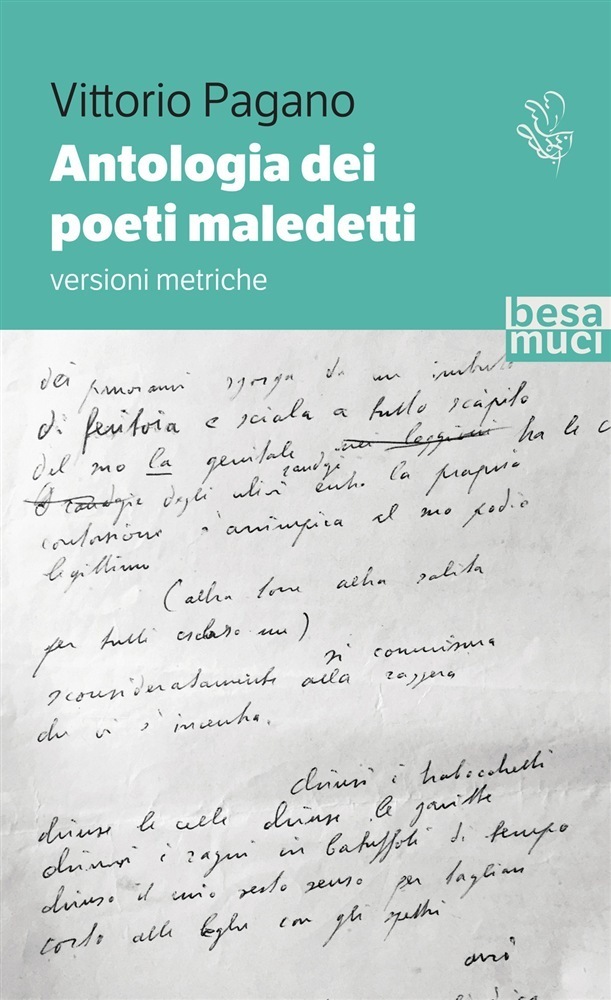 Vittorio Pagano
Antologia dei
poeti maledetti
versioni metriche
besa
muci
dei panorami sgorga da un imbuto
di feritoia e sciala a tutto scàpito
del suo la genitale ha le
degli ulivi entro la propria
contorsione s'arrampica al suo podio
legittimo
(altra torre altra salita
per tutti escluso me)
si commisura
sconsideratamente alla raggera
che vi s'incentra.
chiusi i trabocchetti
chiuse le celle chiuse le garitte
chiusi i ragni in batuffoli di tempo
chiuso il mio resto senso per tagliar
corto alle beghe con gli spettri